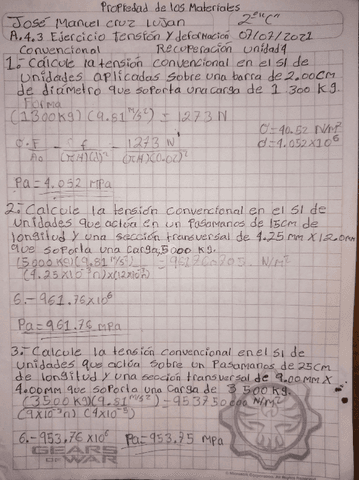 Propiedad de los Materiales
José Manuel Cruz Lujan 2º "C"
A.4.3 Ejercicio Tensión y deformación 07/07/2021
Convencional Recuperación Unidad 4
1.- Calcule la tensión convencional en el SI de
Unidades aplicadas sobre una barra de 2.00cm
de diámetro que soporta una carga de 1 300 kg.
Forma
(1300kg)(9.81 m/s²) = 1273 N
1273 N
Pa = 4.052 MPa
2.- Calcule la tensión convencional en el SI de
Unidades que actúa en un Pasamanos de 15cm de
longitud y una sección transversal de 4.25 mm x 12.0mm
que soporta una carga, 5000 kg.
(5000 kg)(9.81 m/s²)
N/m²
6.- 961.76x10⁶
Pa = 961.76 MPa
3.- Calcule la tensión convencional en el SI de
unidades que actúa sobre un Pasamanos de 25cm
de longitud y una sección transversal de 9.00mm x
4.00mm que soporta una carga de 3 500 kg.
(3500 kg)(9.81 m/s²) = 953750000 N/m²
6.- 953.76 x10⁶ Pa = 953.75 MPa
GEARS
OF WAR